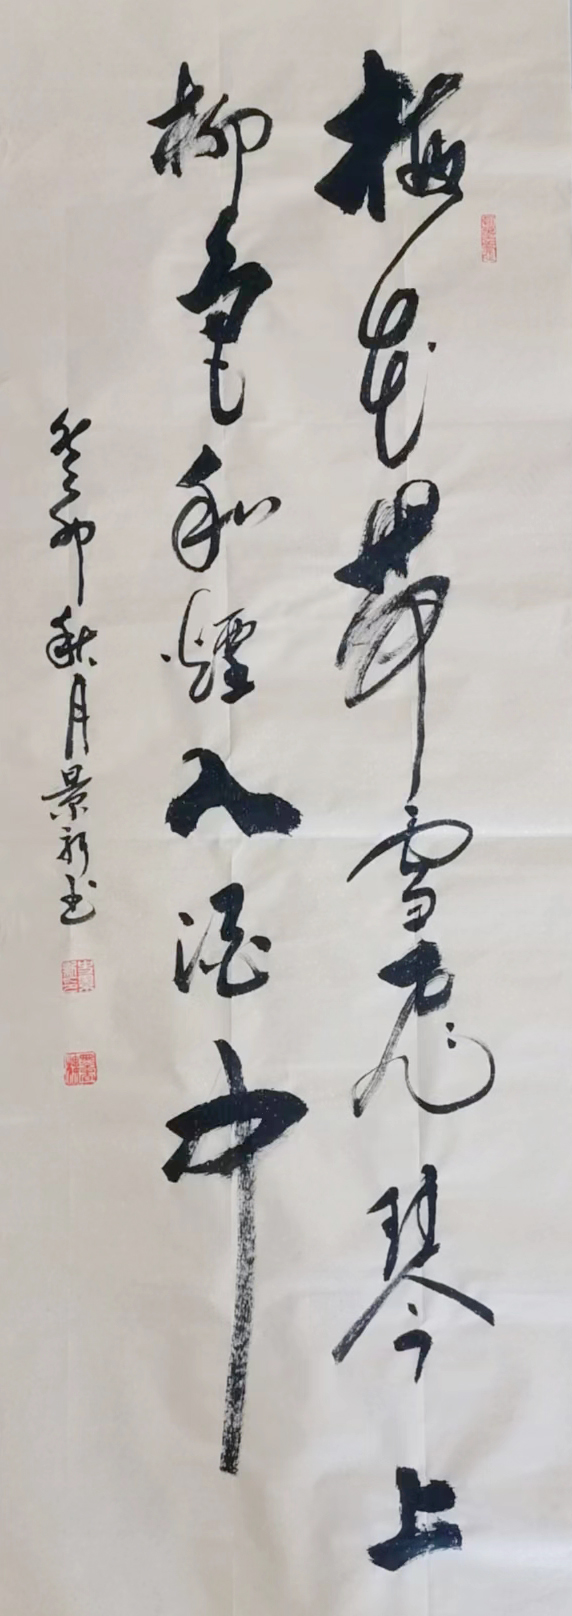 梅花带雪飞琴上
柳色和烟入酒中
癸卯秋月景新书